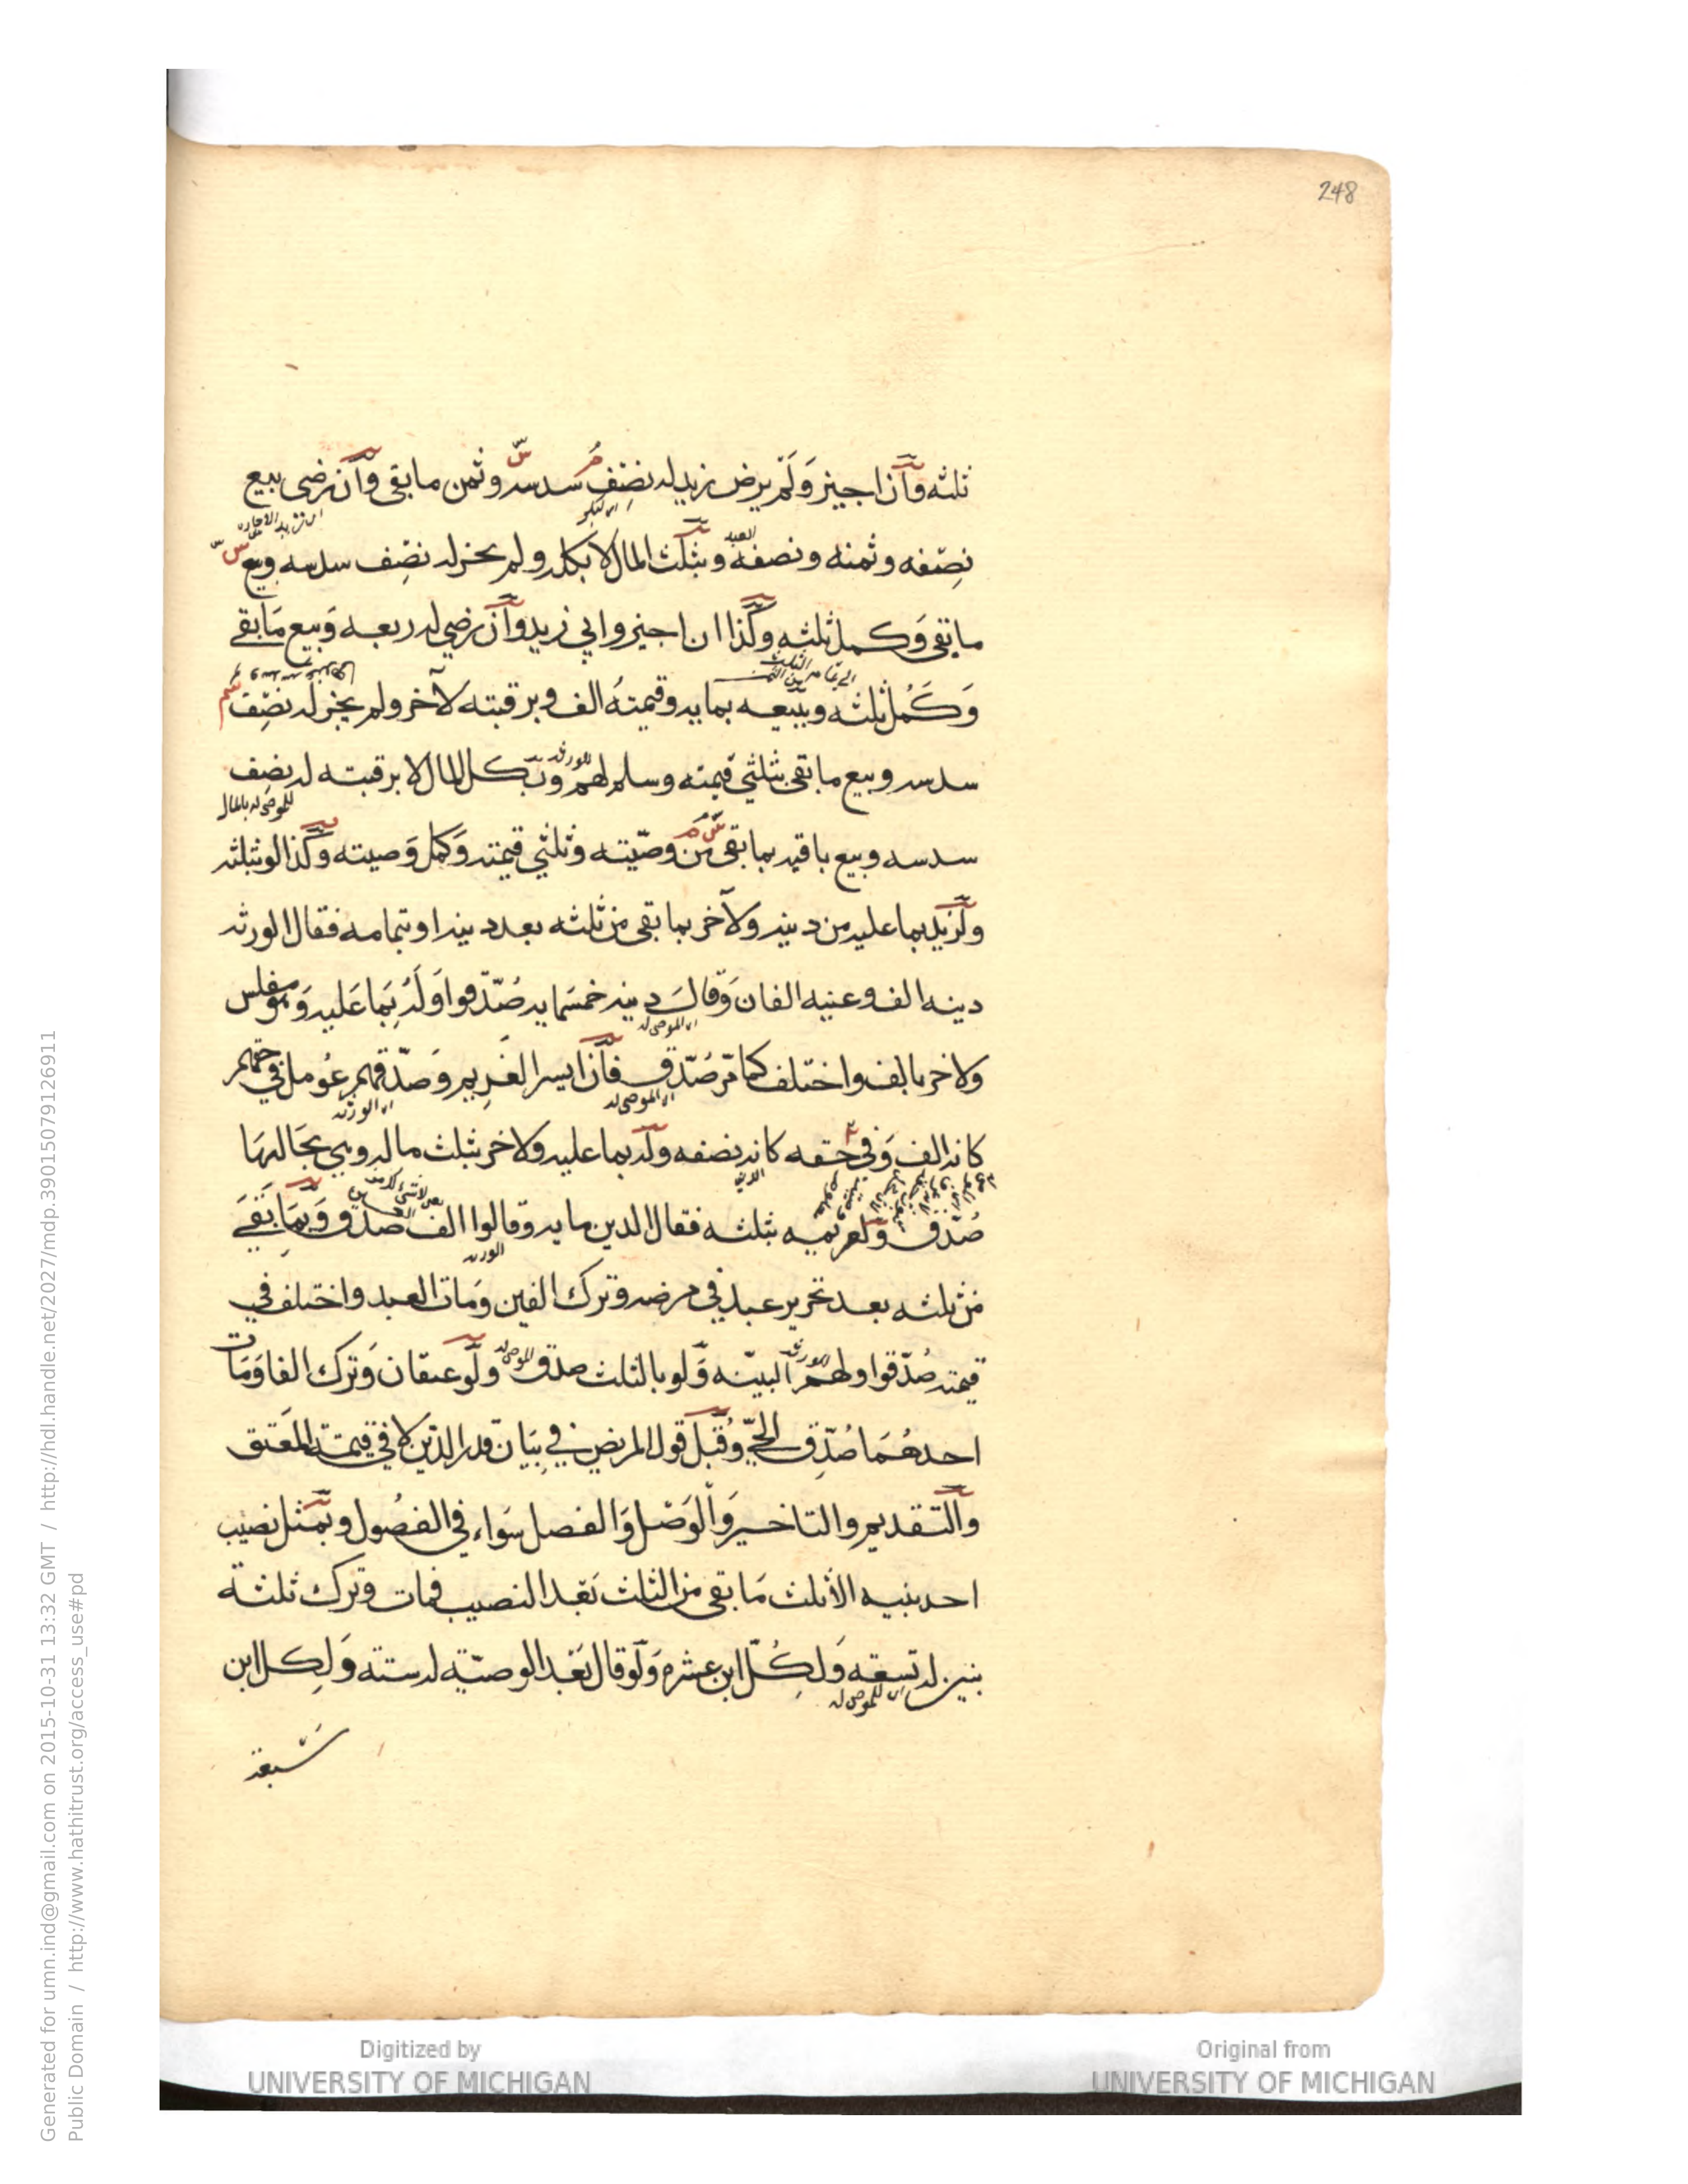 248
ثلثه وان اجيز ولم يرض زيد له نصف سدسه وثمن ما بقى وان رضى بيع
نصفه وثمنه ونصفه وبثلث المال لا بكله ولم يجز له نصف سدسه وبيع
ما بقى وكمل ثلثه وكذا ان اجيز وابى زيد وان رضي له ربعه وبيع ما بقى
وكمل ثلثه وببيعه بمايه وقيمته الف وبرقبته لآخر ولم يجز له نصف
سدسه وبيع ما بقى بثلثي قيمته وسلم لهم وبكل المال لا برقبته له نصف
سدسه وبيع باقيه بما بقى من وصيته وثلثي قيمته وكمل وصيته وكذا لو بثلثه
ولزيد بما عليه من دينه ولآخر بما بقى من ثلثه بعد دينه او بتمامه فقال الورثه
دينه الف وعنيه الفان وقال دينه خمسمايه صدقوا ولو له بما عليه وهو مفلس
ولاخر بالف واختلف كما مر صدق فان ايسر الغريم وصدقهم عومل في حقهم
كانه الف وفي حقه كانه نصفه وله بما عليه ولاخر بثلث ماله وهي بحالها
صدق ولغريميه بثلثه فقال الدين مايه وقالوا الف صدق وبما بقى
من ثلثه بعد تحرير عبد في مرضه وترك الفين ومات العبد واختلف في
قيمته صدقوا ولهم البينه ولو بالثلث صدق ولو عبدان وترك الفا ومات
احدهما صدق الحي وقبل قول المريض في بيان قدر الدين لا في قيمته المعتق
والتقديم والتاخير والوصل والفصل سواء في الفصول وبمثل نصيب
احد بنيه الا ثلث ما بقى من الثلث بعد النصيب فمات وترك ثلثة
بنين له تسعه ولكل ابن عشره ولو قال بعد الوصية له ستة ولكل ابن
سبعة
Digitized by
UNIVERSITY OF MICHIGAN
Original from
UNIVERSITY OF MICHIGAN
Generated for umn.ind@gmail.com on 2015-10-31 13:32 GMT / http://hdl.handle.net/2027/mdp.39015079126911
Public Domain / http://www.hathitrust.org/access_use#pd